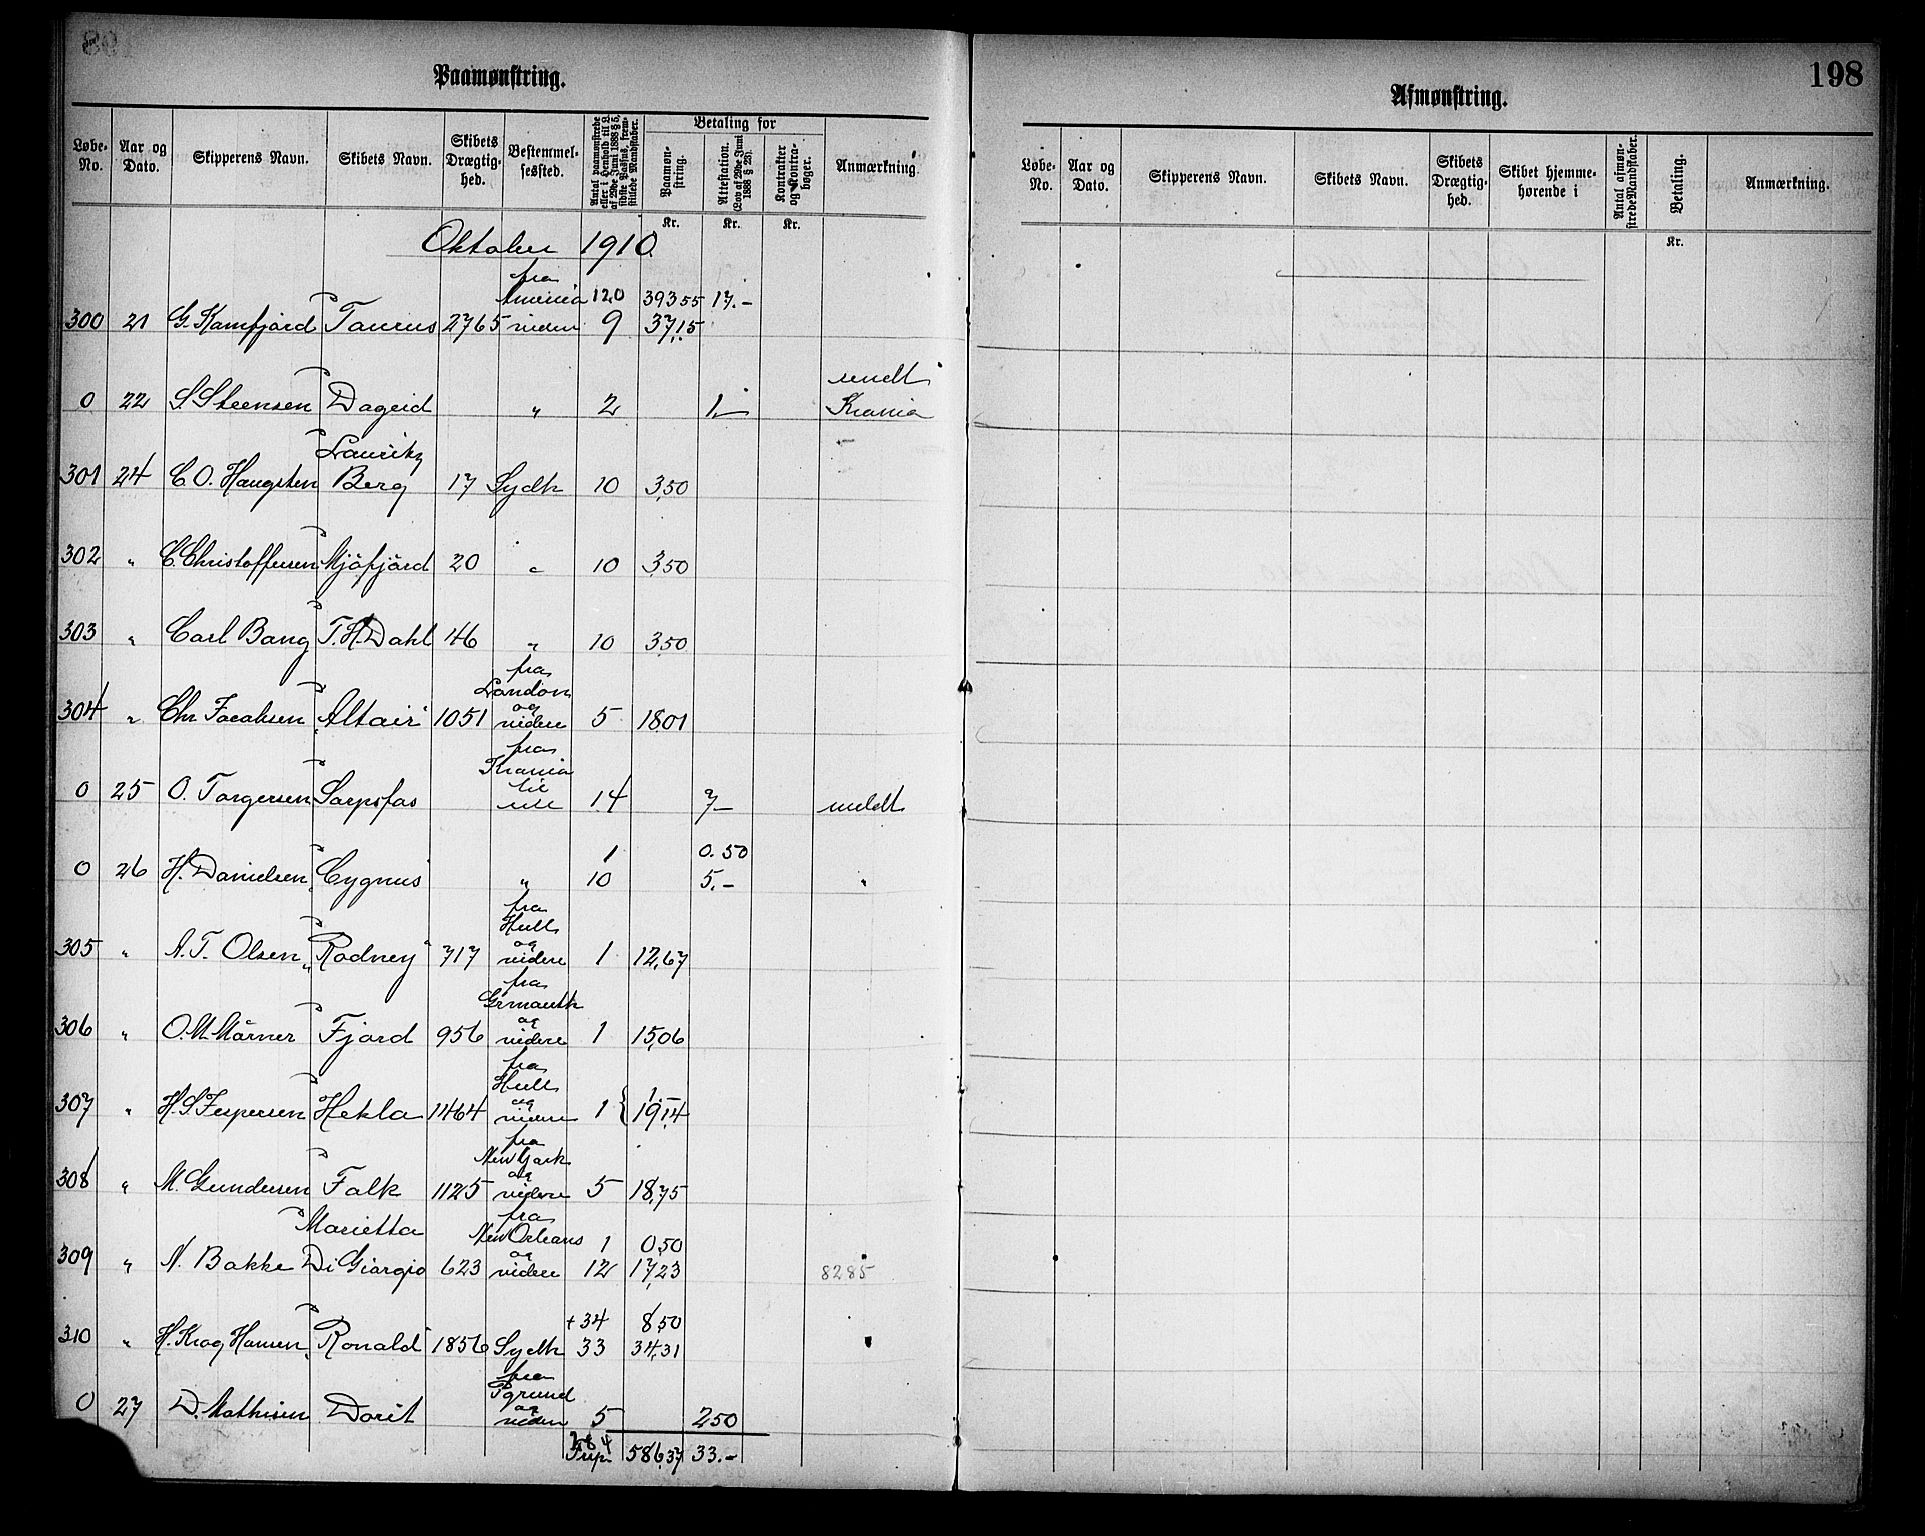 Paamønstring.
Løbe-No. Aar og Dato. Skipperens Navn. Skibets Navn. Skibets Drægtighed. Bestemmelsessted. Antal paamønstrede eller i Henhold til L. af 29de Juni 1888 § 5, sidste Passus, fremstillede Mandskaber. Betaling for Paamønstring. Attestation. (Lov af 29de Juni 1888 § 23). Kontrakter og Kontrabøger. Anmærkning.
Kr. Kr. Kr.
Oktober 1910.
fra
America 120 393 55 17.-
300 21 G. Kamfjord Taurus 2765 videre 9 37,15
sendt
0 22 S. Steensen Dageid " 2 1.- Krania
Lauritz
301 24 C. O. Haugsten Berg 17 Sydh 10 3,50
302 " C. Christoffersen Mjöfjörd 20 " 10 3,50
303 " Carl Bang T. H. Dahl 146 " 10 3,50
fra
London
og
304 " Chr Jacobsen "Altair" 1051 videre 5 18,01
fra
Krania
til
0 25 O. Torgersen Sarpsfos 14 7- meldt
1 0.50
0 26 H. Danielsen "Cygnus" " 10 5.- "
fra
Hull
og
305 " A. T. Olsen "Rodney" 717 videre 1 12,67
fra
og
306 " O. M. Mörner Fjord 956 videre 1 15,06
fra
Hull
og
307 " H. S. Jespersen Hekla 1464 videre 1 { 19,14
fra
New York
og
308 " M. Gundersen Falk 1125 videre 5 18,75
Marietta fra
New Orleans 1 0,50
og
309 " N. Bakke Di Giorgio 623 videre 12 17,23 8285
+ 34 8,50
310 " H. Krog Hansen "Ronald" 1856 Sydh 33 34,31
fra
Pgrund
og
0 27 D. Mathisen Dorit videre 5 2 50
284
586,37 33.-
198
Afmønstring.
Løbe-No. Aar og Dato. Skipperens Navn. Skibets Navn. Skibets Drægtighed. Skibet hjemmehørende i Antal afmønstrede Mandskaber. Betaling. Anmærkning.
Kr.